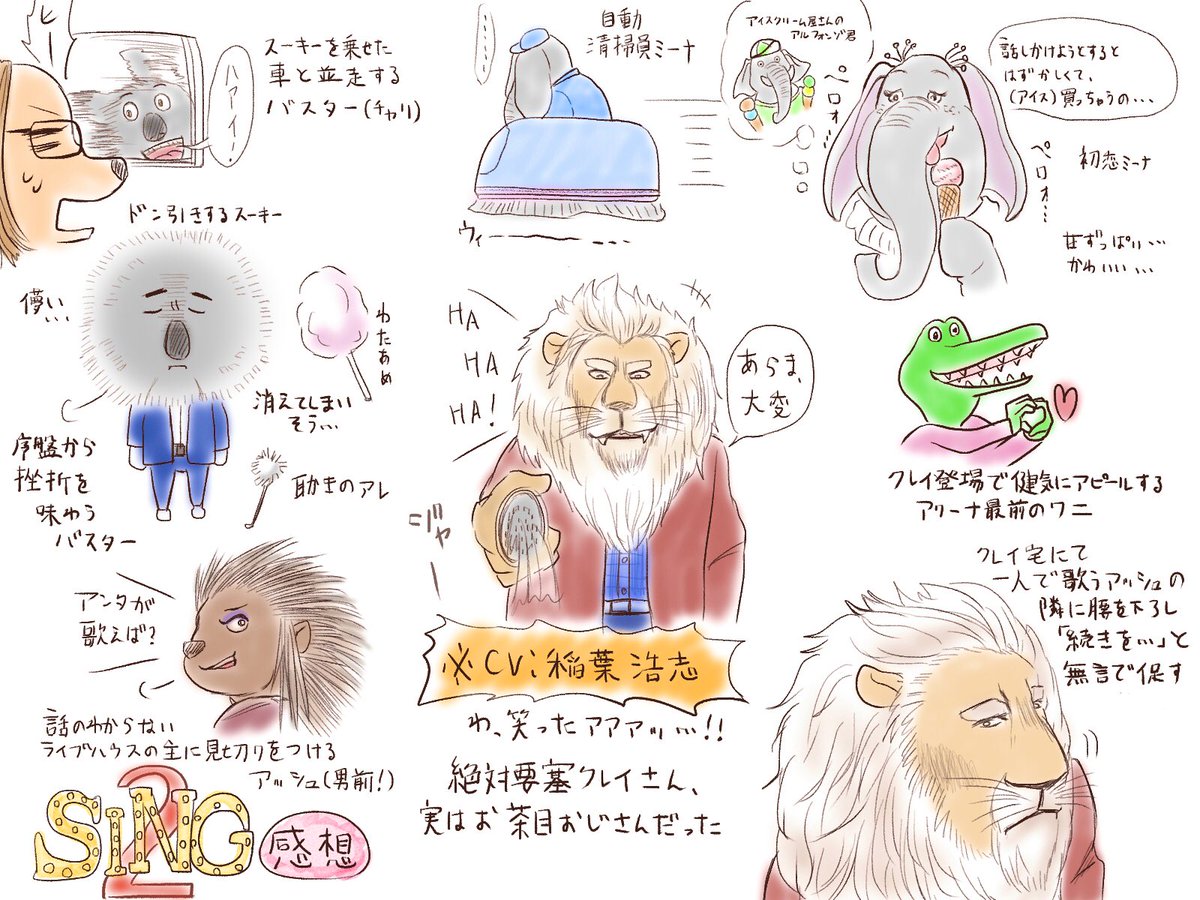 ヒー
ハァーイ!
スーキーを乗せた
車と並走する
バスター(チャリ)
ドン引きするスーキー
…………
自動
清掃員ミーナ
ウィーーーー…
アイスクリーム屋さんの
アルフォンゾ君
ペロォ…
話しかけようとすると
はずかしくて、
(アイス)買っちゃうの…
ペロォ…
初恋ミーナ
甘ずっぱい…
かわいい…
儚い…
わたあめ
消えてしまい
そう…
耳かきのアレ
序盤から
挫折を
味わう
バスター
HA
HA
HA!
あらま、
大変
ジャー
※CV:稲葉浩志
わ、笑ったアアアッ…!!
絶対要塞クレイさん、
実はお茶目おじさんだった
クレイ登場で健気にアピールする
アリーナ最前のワニ
クレイ宅にて
一人で歌うアッシュの
隣に腰を下ろし
「続きを…」と
無言で促す
アンタが
歌えば?
話のわからない
ライブハウスの主に見切りをつける
アッシュ(男前!)
SING
2
感想